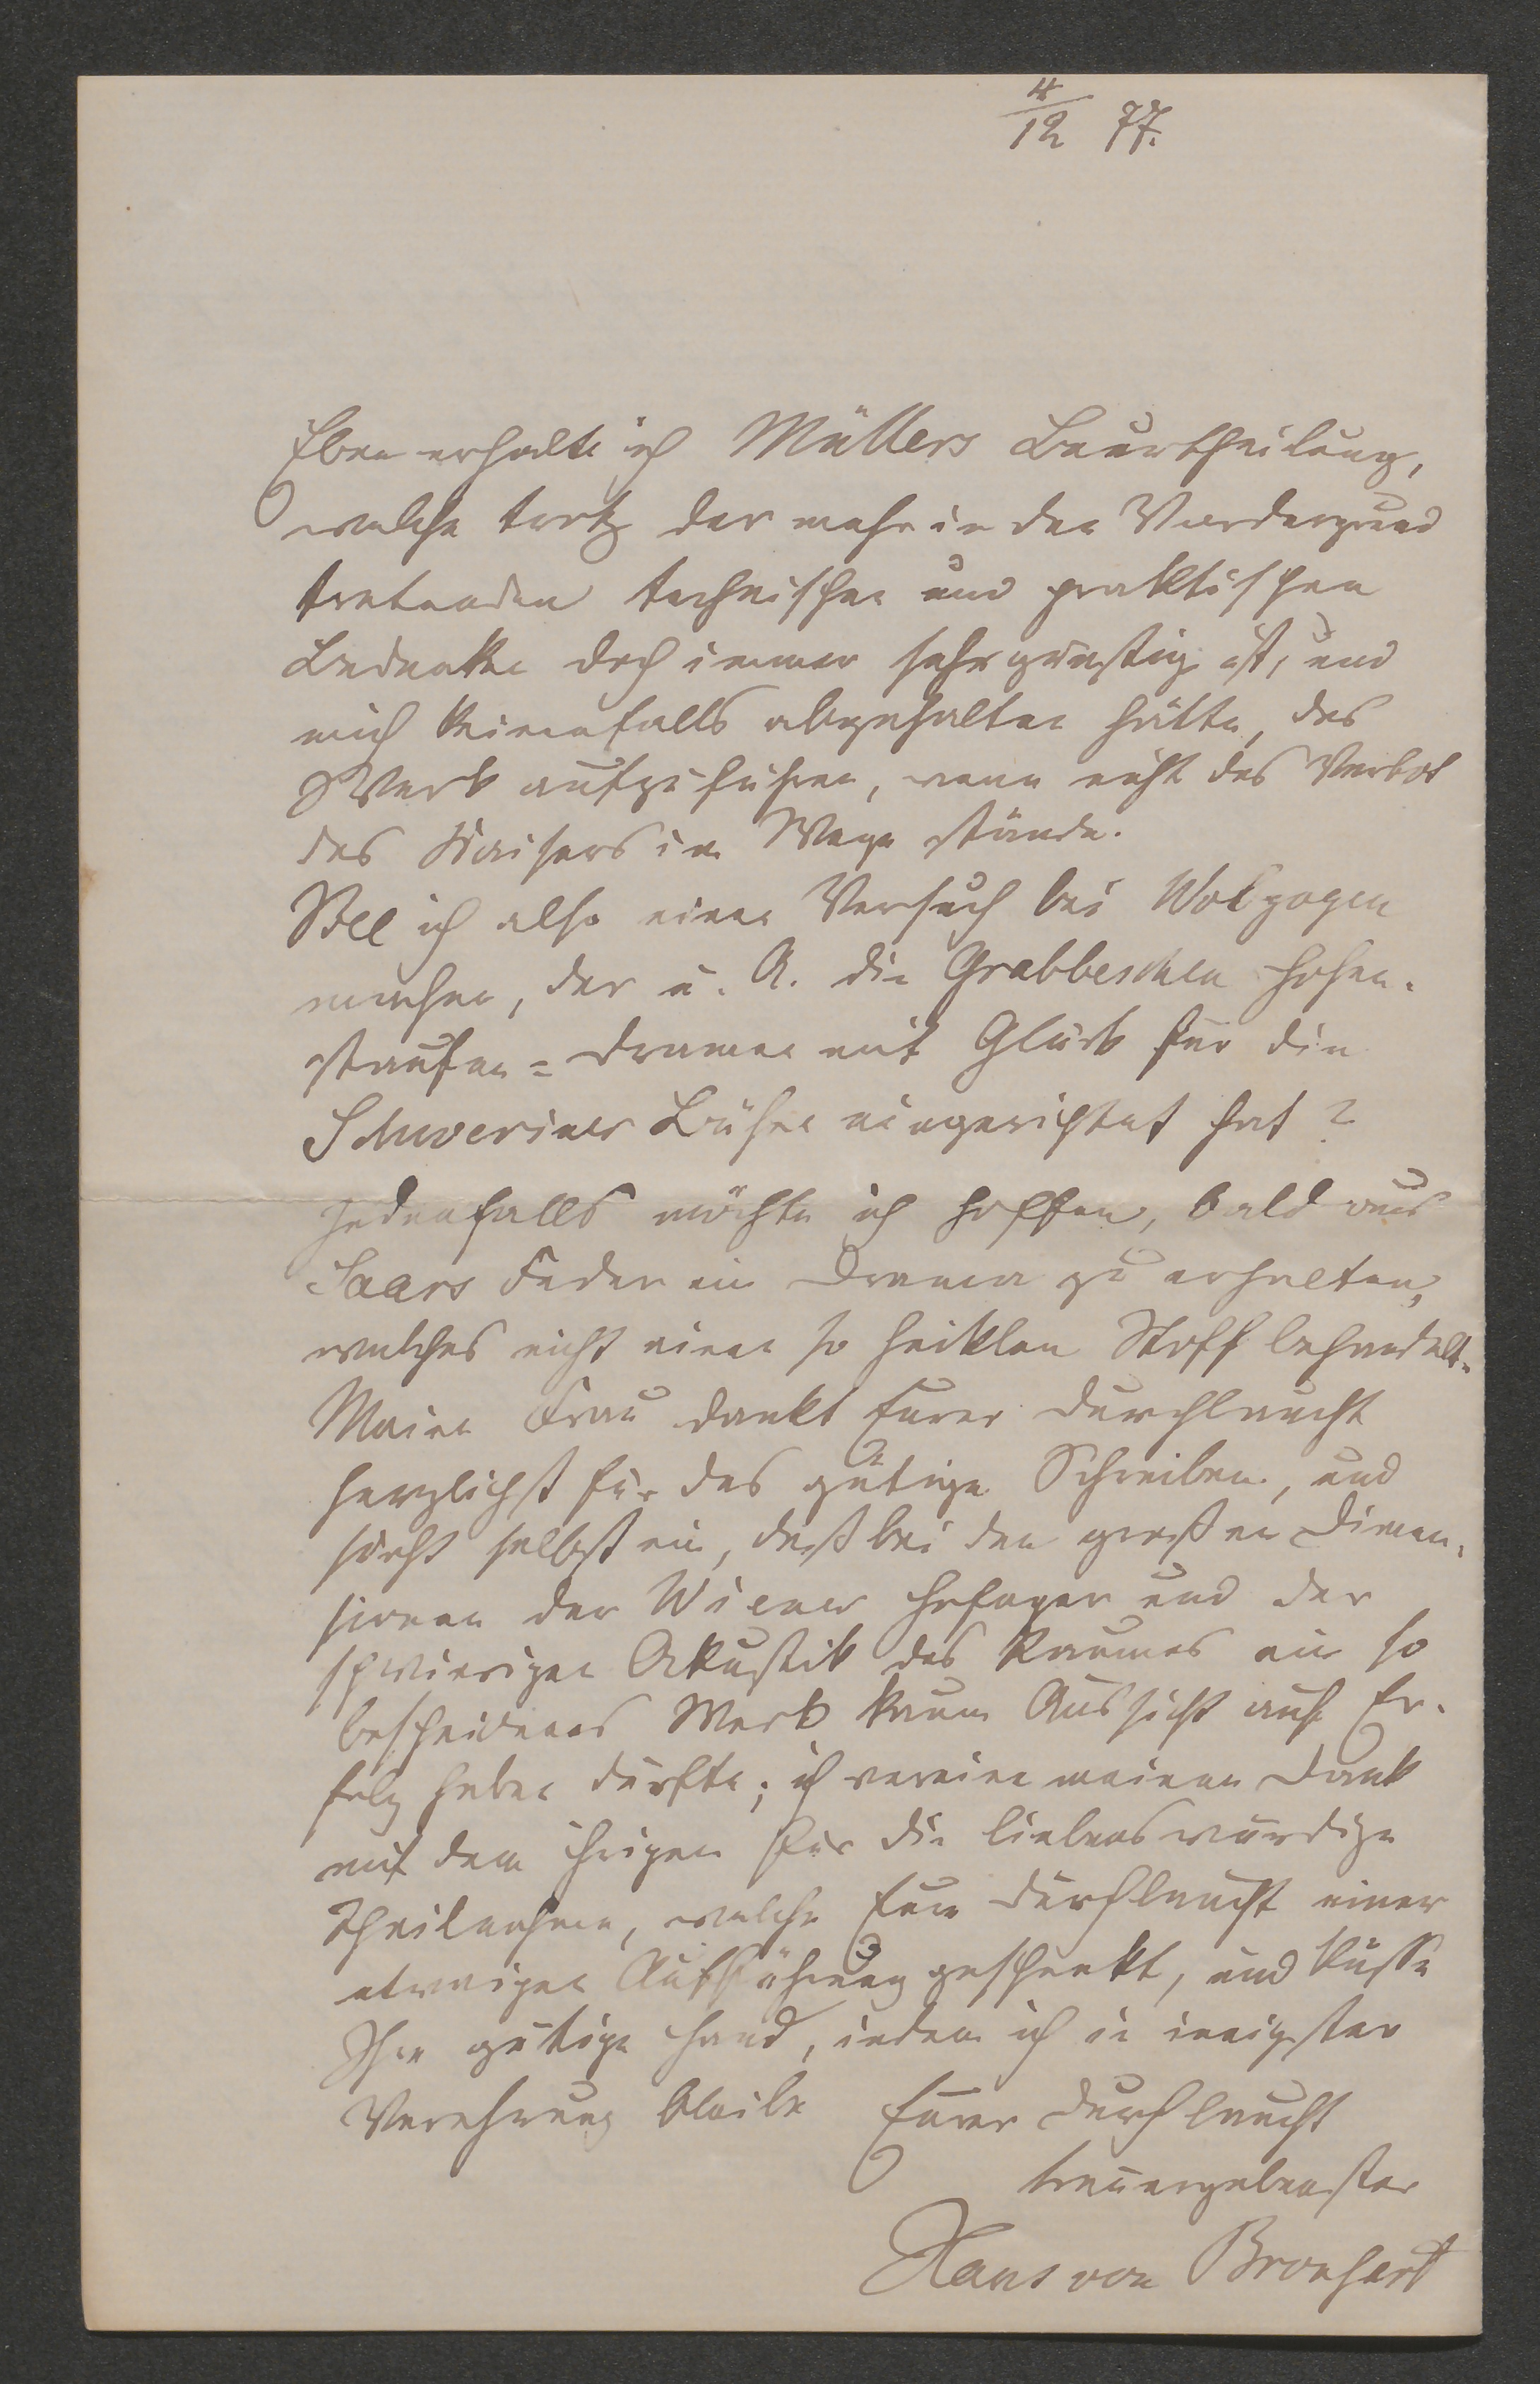 4/12 77.
Eben erhalte ich Müllers Beurtheilung,
welche trotz der mehr in den Vordergrund
tretenden technischen und praktischen
Bedenken doch immer sehr günstig ist, und
mich keinenfalls abgehalten hätte, das
Werk aufzuführen, wenn nicht das Verbot
des Kaisers im Wege stände.
Soll ich also einen Versuch bei Wolzogen
machen, der u. A. die Grabbeschen Hohen-
staufen=Dramen mit Glück für die
Schweriner Bühne eingerichtet hat?
Jedenfalls möchte ich hoffen, bald aus
Saars Feder ein Drama zu erhalten,
welches nicht einen so heiklen Stoff behandelt.
Meine Frau dankt Eurer Durchlaucht
herzlichst für das gütige Schreiben, und
sieht selbst ein, daß bei den großen Dimen-
sionen der Wiener Hofoper und der
schwierigen Akustik des Raumes ein so
bescheidenes Werk kaum Aussicht auf Er-
folg haben dürfte; ich vereine meinen Dank
mit dem ihrigen für die liebenswürdige
Theilnahme, welche Eure Durchlaucht einer
etwaigen Aufführung geschenkt, und küsse
Ihre gütige Hand, indem ich in innigster
Verehrung bleibe Eurer Durchlaucht
treuergebenster
Hans von Bronsart